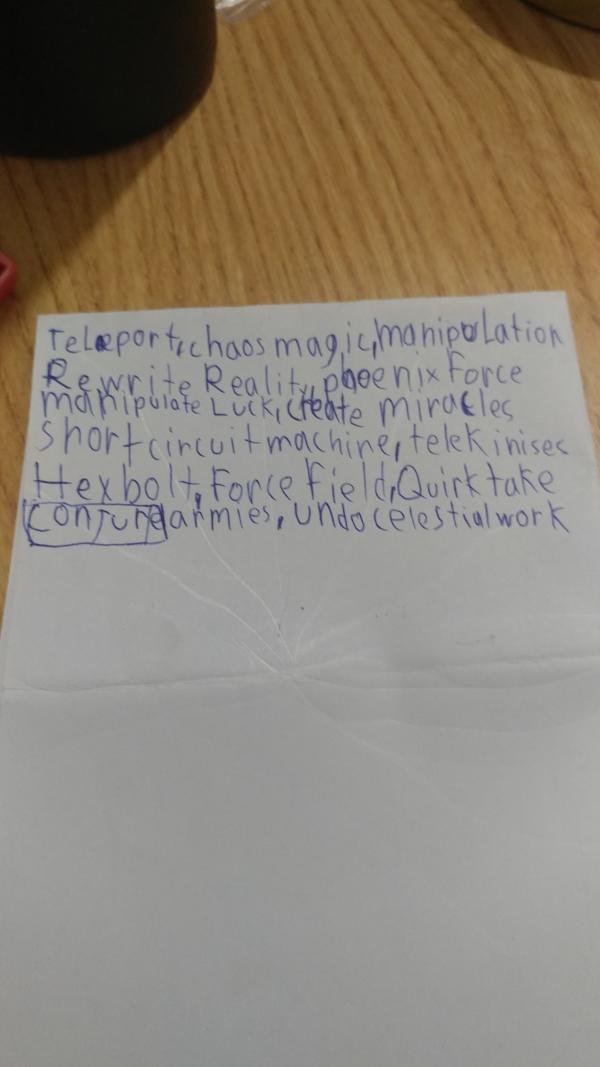 Teleport, chaos magic, manipulation
Rewrite Reality, phoenix force
manipulate Luck, create miracles
short circuit machine, telekinisec
Hex bolt, Force field, Quirk take
conjure armies, undo celestial work